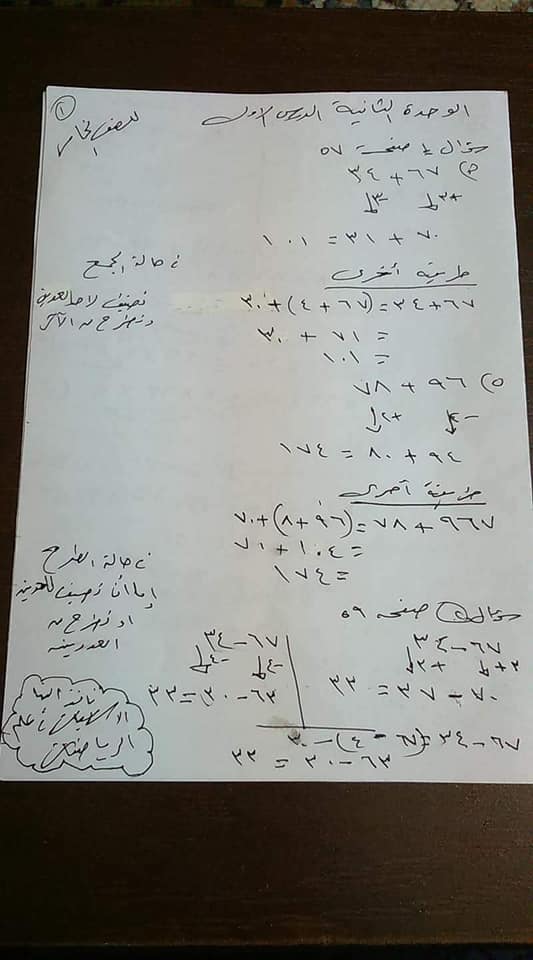 الوحدة الثانية الدرس الاول
للصف الخامس
١
سؤال ٤ صفحة ٥٧
ج) ٦٧ + ٣٤
+٣ -٣
٧٠ + ٣١ = ١٠١
في حالة الجمع
نضيف لاحد العددين
ونطرح من الآخر
طريقة أخرى
٦٧ + ٣٤ = (٦٧ + ٤) + ٣٠
= ٧١ + ٣٠
= ١٠١
٥) ٩٦ + ٧٨
-٢ +٢
٩٤ + ٨٠ = ١٧٤
طريقة أخرى
٩٦٧ + ٧٨ = (٩٦ + ٨) + ٧٠
= ١٠٤ + ٧٠
= ١٧٤
في حالة الطرح
إما أن نضيف للعددين
او نطرح من
العددين
سؤال صفحة ٥٩
٦٧ - ٣٤
+٣ +٣
٧٠ - ٣٧ = ٣٣
٦٧ - ٣٤
-٤ -٤
٦٣ - ٣٠ = ٣٣
٦٧ - ٣٤ = (٦٧ - ٤) - ٣٠
٦٣ - ٣٠ = ٣٣
الرياضيات